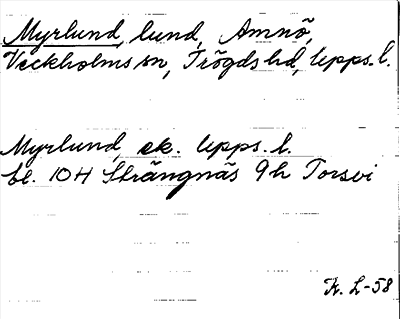 Myrlund, lund, Amnö,
Veckholms sn, Trögds hd, Upps. l.
Myrlund, ek. Upps. l.
bl. 10H Strängnäs 9h Torsvi
K. L-58